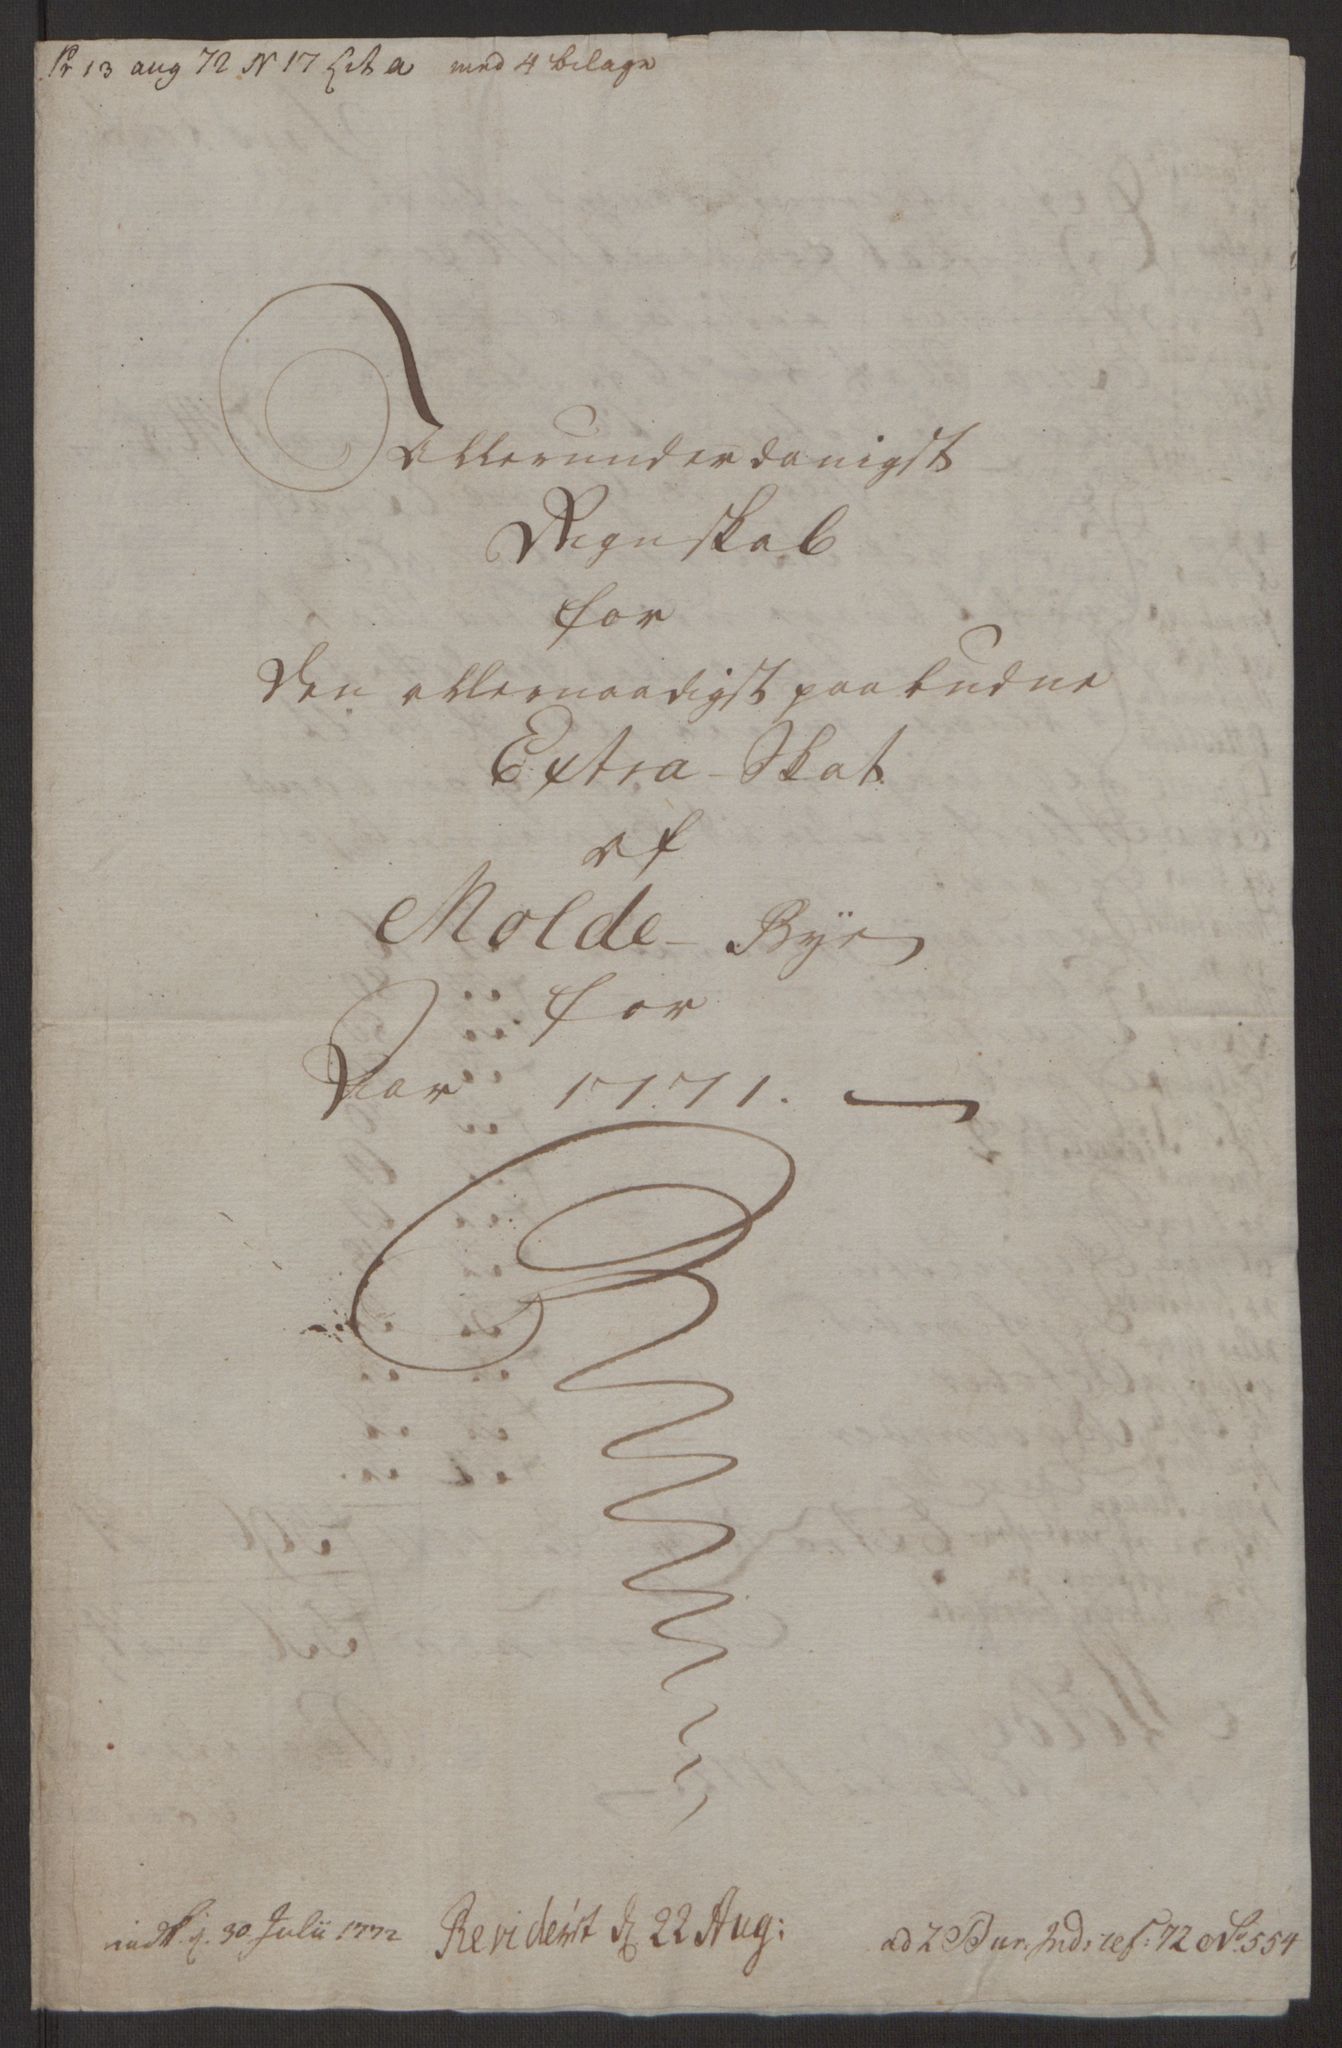 Pr 13 aug 72 N 17 Lit a med 4 bilage
Allerunderdanigst
Regnskab
for
Den allernaadigst paabudne
Extra-Skat
af
Molde-Bye
for
Aar 1771.
30 Julii 1772
Reviderit d 22 Aug:
ad 2 Bur. Ind: 72 No. 554